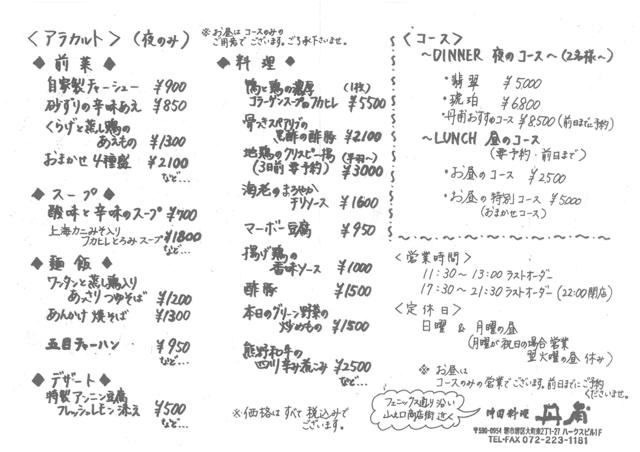 〈アラカルト〉(夜のみ)
※お昼はコースのみの
ご用意でございます。ご了承下さいませ。
◆前菜◆
自家製チャーシュー ¥900
砂ずりの辛味あえ ¥850
くらげと蒸し鶏の
あえもの ¥1300
おまかせ4種盛 ¥2100
など…
◆スープ◆
酸味と辛味のスープ ¥700
上海カニみそ入り
フカヒレとろみスープ ¥1800
など…
◆麺飯◆
ワンタンと蒸し鶏入り
あっさりつゆそば ¥1200
あんかけ焼そば ¥1300
五目チャーハン ¥950
など…
◆デザート◆
特製アンニン豆腐
フレッシュレモン添え ¥500
など…
◆料理◆
鴨と鶏の濃厚 (1枚)
コラーゲンスープのフカヒレ ¥5500
骨つきスペアリブの
黒酢の酢豚 ¥2100
地鶏のクリスピー揚 (半羽〜)
(3日前要予約) ¥3000
海老のまろやか
チリソース ¥1600
マーボー豆腐 ¥950
揚げ鶏の
香味ソース ¥1000
酢豚 ¥1500
本日のグリーン野菜の
炒めもの ¥1500
熊野和牛の
四川辛み煮こみ ¥2500
など…
※価格はすべて税込みで
ございます。
〈コース〉
〜DINNER 夜のコース〜(2名様〜)
・翡翠 ¥5000
・琥珀 ¥6800
・丹甫おすすめコース ¥8500(前日までに予約)
〜LUNCH 昼のコース
(要予約・前日まで)
・お昼のコース ¥2500
・お昼の特別コース ¥5000
(おまかせコース)
〈営業時間〉
11:30〜13:00ラストオーダー
17:30〜21:30ラストオーダー(22:00閉店)
〈定休日〉
日曜 & 月曜の昼
(月曜が祝日の場合営業
翌火曜の昼休み)
※お昼は
コースのみの営業でございます。前日までにご予約
くださいませ。
フェニックス通り沿い
山之口商店街近く
中国料理
〒590-0954 堺市堺区大町東2丁1-27 ハークスビル1F
TEL・FAX 072-223-1181